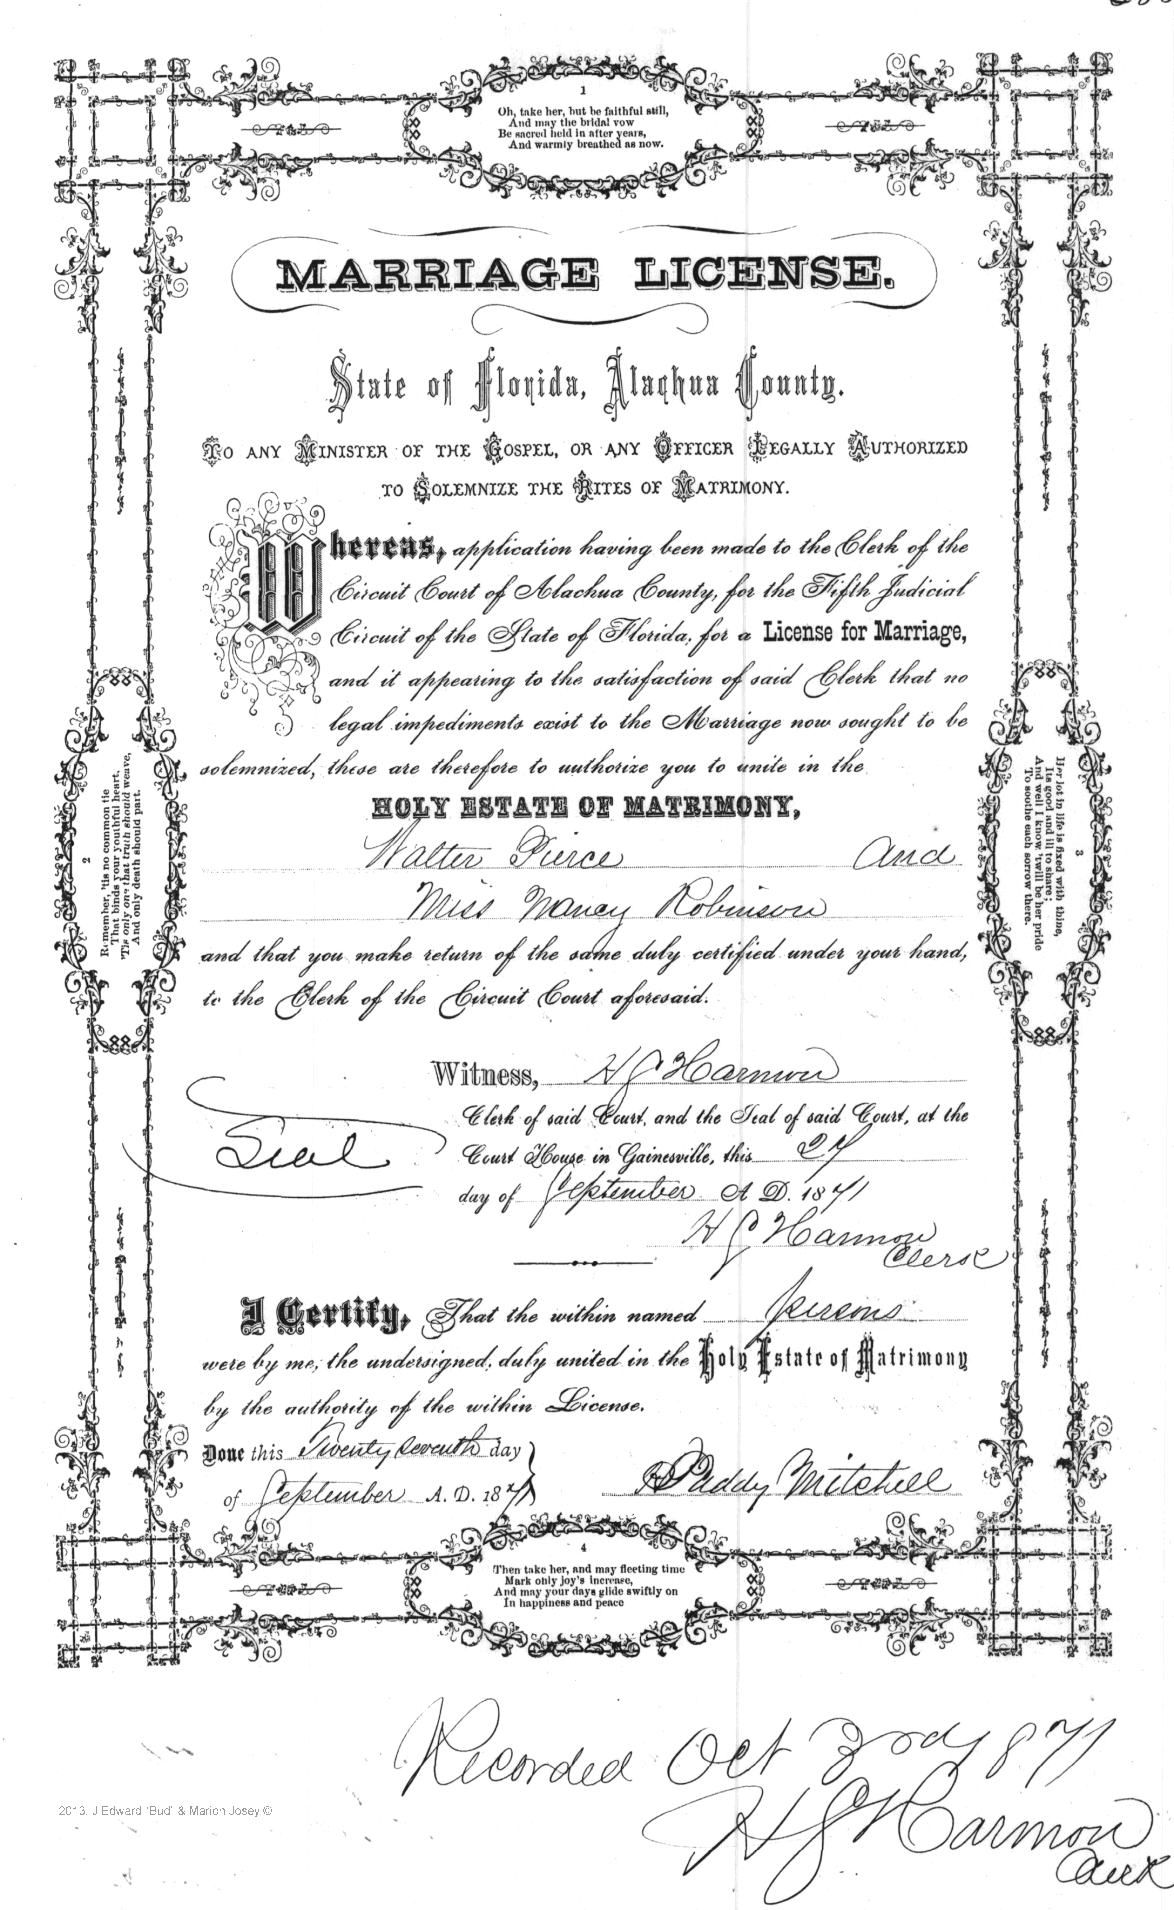 1
Oh, take her, but be faithful still,
And may the bridal vow
Be sacred held in after years,
And warmly breathed as now.
MARRIAGE LICENSE.
State of Florida, Alachua County.
TO ANY MINISTER OF THE GOSPEL, OR ANY OFFICER LEGALLY AUTHORIZED
TO SOLEMNIZE THE RITES OF MATRIMONY.
Whereas, application having been made to the Clerk of the
Circuit Court of Alachua County, for the Fifth Judicial
Circuit of the State of Florida, for a License for Marriage,
and it appearing to the satisfaction of said Clerk that no
legal impediments exist to the Marriage now sought to be
solemnized, these are therefore to authorize you to unite in the
HOLY ESTATE OF MATRIMONY,
Walter Pierce And
Miss Nancy Robinson
and that you make return of the same duly certified under your hand,
to the Clerk of the Circuit Court aforesaid.
2
Remember, 'tis no common tie
That binds your youthful heart,
'Tis only one that truth should weave,
And only death should part.
3
Her lot in life is fixed with thine,
Its good and ill to share;
And well I know 'twill be her pride
To soothe each sorrow there.
Witness, H J Harmon
Clerk of said Court, and the Seal of said Court, at the
Seal
Court House in Gainesville, this 27
day of September A D. 1871
H J Harmon
Clerk
I Certify, That the within named persons
were by me, the undersigned, duly united in the Holy Estate of Matrimony
by the authority of the within License.
Done this Twenty Seventh day
of September A. D. 1871
Paddy Mitchell
4
Then take her, and may fleeting time
Mark only joy's increase,
And may your days glide swiftly on
In happiness and peace
Recorded Oct 3rd 1871
H J Harmon
Clerk
2013. J Edward 'Bud' & Marion Josey ©